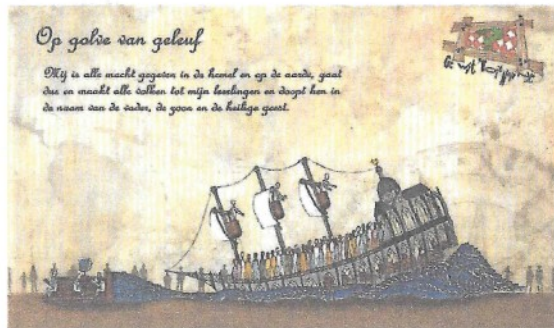 Op golve van geleuf
Mij is alle macht gegeven in de hemel en op de aarde, gaat
dus en maakt alle volken tot mijn leerlingen en doopt hen in
de naam van de vader, de zoon en de heilige geest.